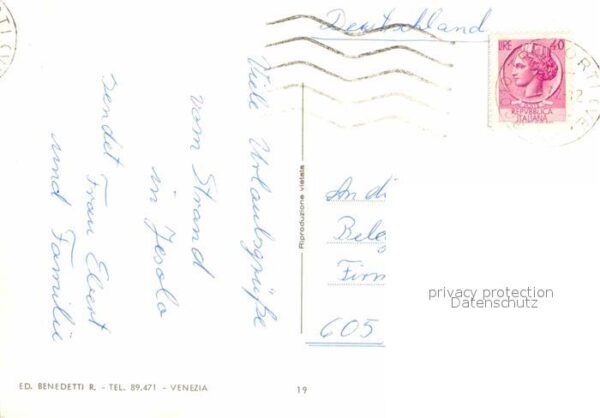 Deutschland
LIRE 40
REPUBBLICA
ITALIANA
Viele Urlaubsgrüße
vom Strand
in Jesolo
sendet Frau Ebert
und Familie
Riproduzione vietata
An di
Beleg
Firm
605
privacy protection
Datenschutz
ED. BENEDETTI R. - TEL. 89.471 - VENEZIA
19